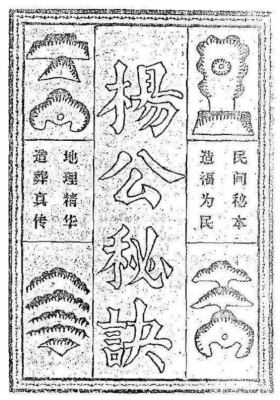 楊公秘訣
民间秘本
造福为民
地理精华
造葬真传